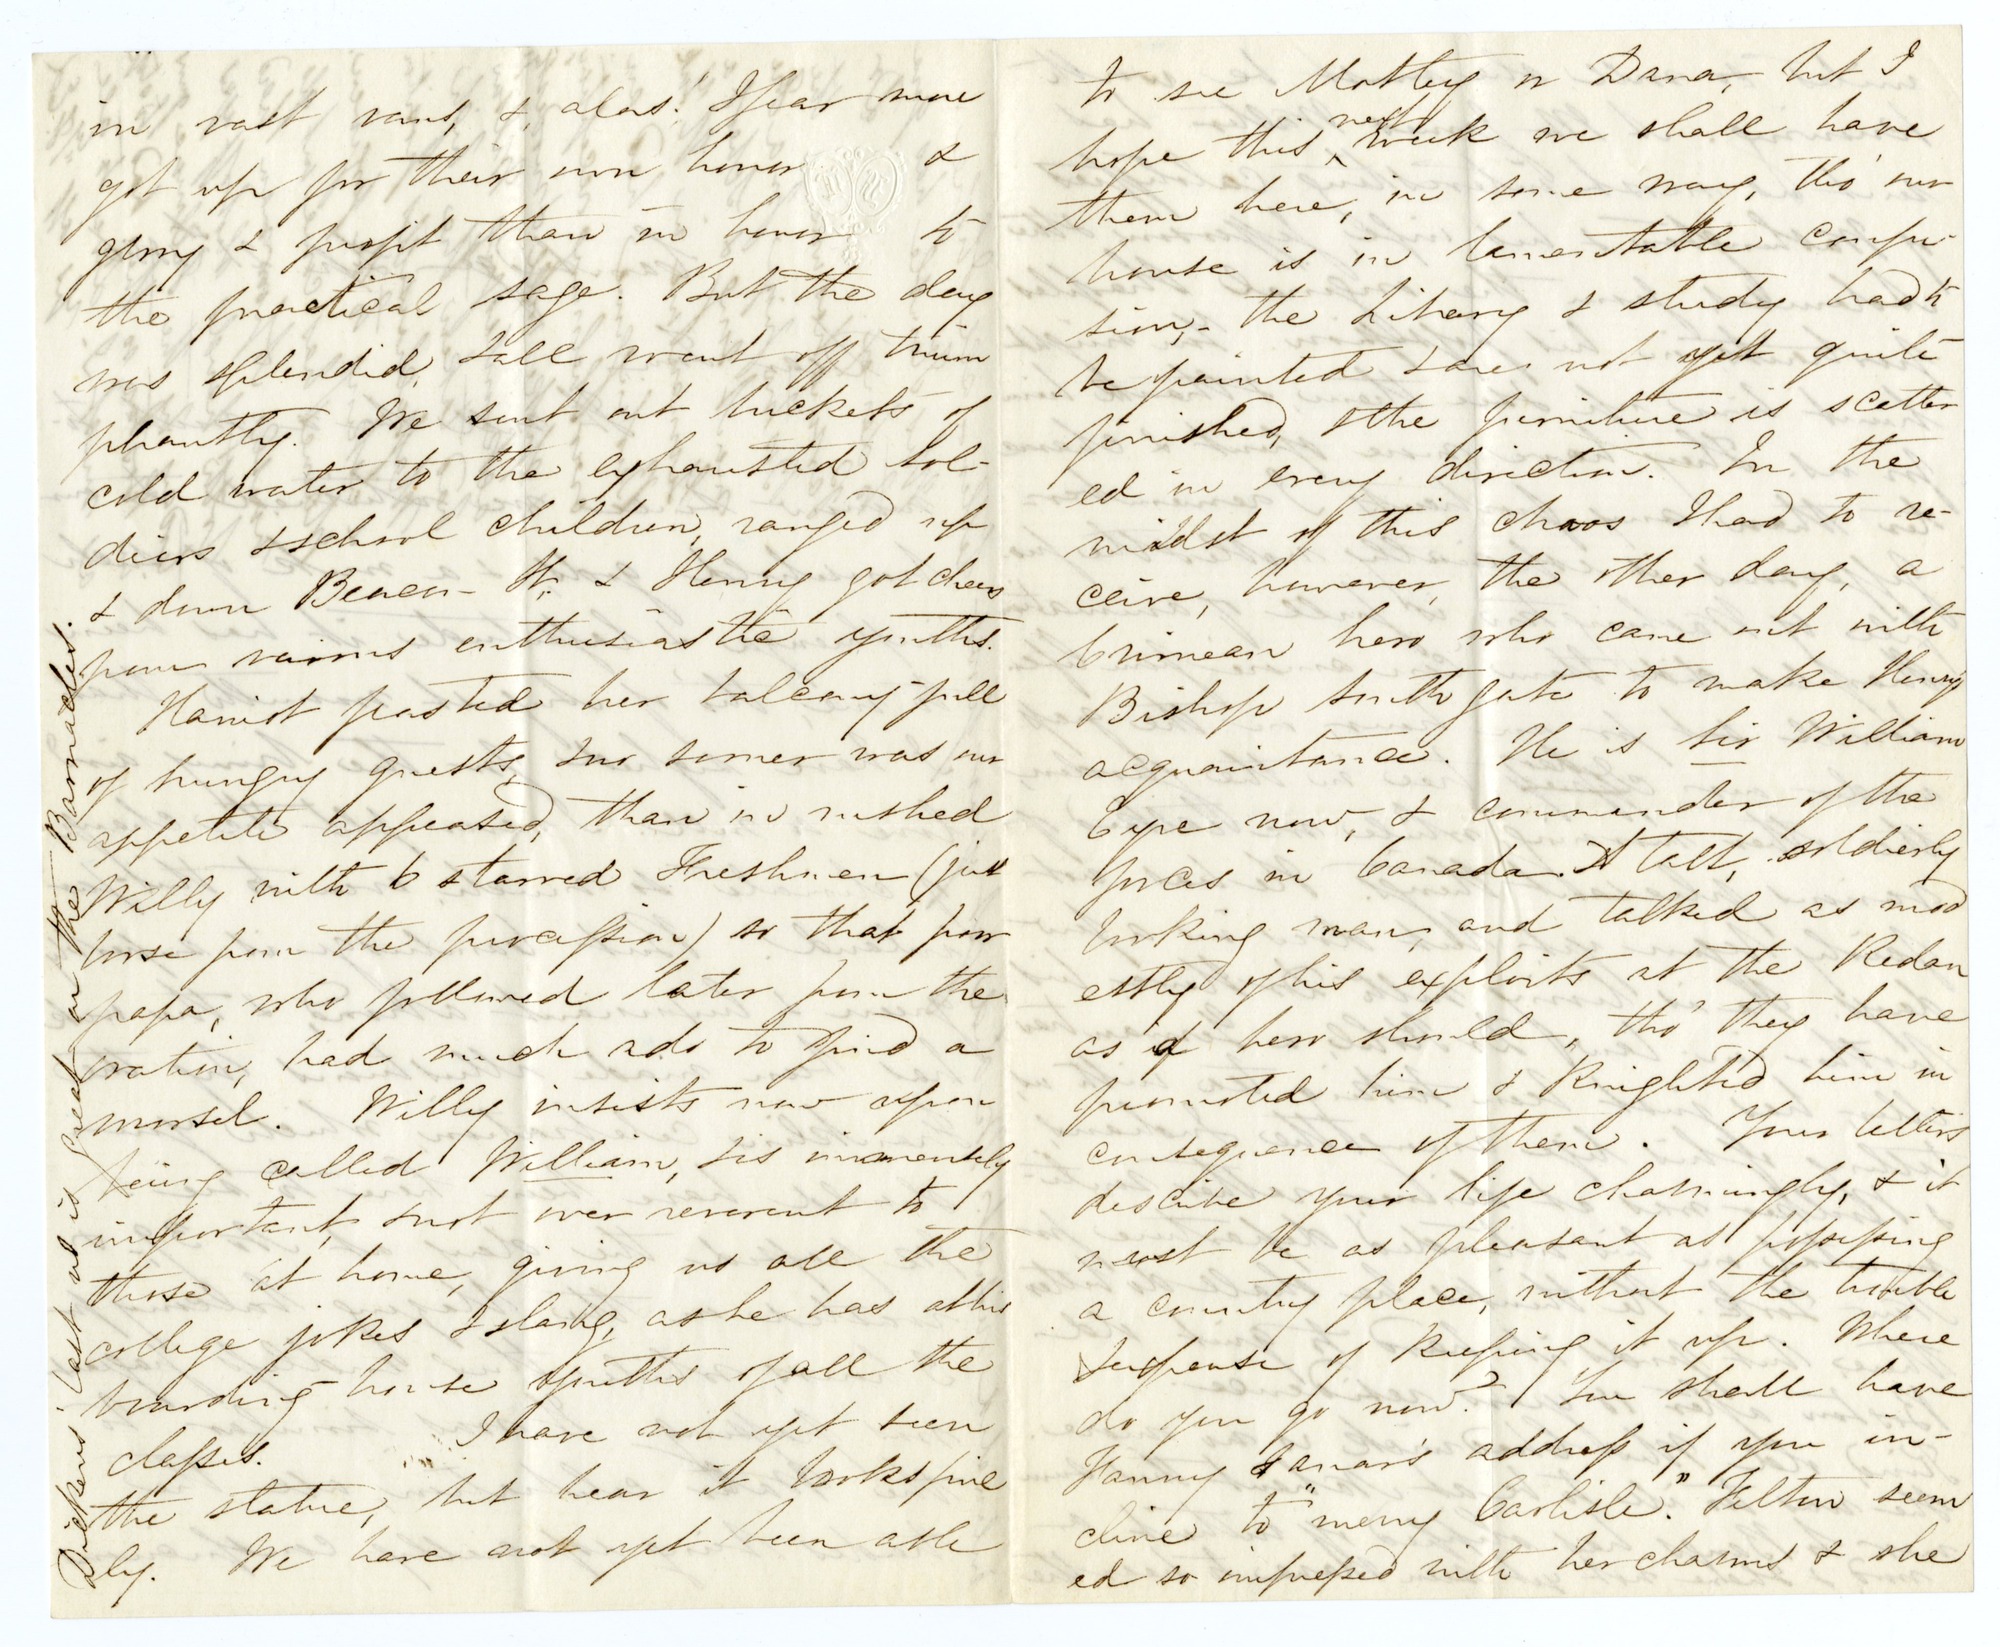 in vast vans, & alas! I fear more
got up for their own honor &
glory & profit than in honor to
the practical sage. But the day
was splendid, & all went off trium
phantly. We sent out buckets of
cold water to the exhausted sol-
diers & school children, ranged up
& down Beacon St. & Henry got cheers
from various enthusiastic youths.
Harriot posted her balcony full
of hungry guests, & no sooner was our
appetite appeased, than in rushed
Willy with 6 starved Freshmen (just
loose from the procession) so that poor
papa, who followed later from the
oration, had much ado to find a
morsel. Willy insists now upon
being called William, & is immensely
important, & not over reverent to
those at home, giving us all the
college jokes & slang, as he has at his
boarding-house youths of all the
classes. I have not yet seen
the statue, but hear it looks fine
ly. We have not yet been able
Dickens' last no is great on the Barnacles.
to see Motley or Dana, but I
hope this next week we shall have
them here, in some way, tho' our
house is in lamentable confu-
sion,- the Library & study had to
be painted & are not yet quite
finished, & the furniture is scatter
ed in every direction. In the
midst of this chaos I had to re-
ceive, however, the other day, a
Crimean hero who came out with
Bishop Southgate to make Henry's
acquaintance. He is Sir William
Eyre now, & commander of the
forces in Canada. A tall, soldierly
looking man, and talked as mod
estly of his exploits at the Redan
as a hero should, tho' they have
promoted him & Knighted him in
consequence of them. Your letters
describe your life charmingly, & it
must be as pleasant as possessing
a country place, without the trouble
& expense of keeping it up. Where
do you go now? You shall have
Fanny address if you in-
cline to "merry Carlisle." Felton seem
ed so impressed with her charms & she